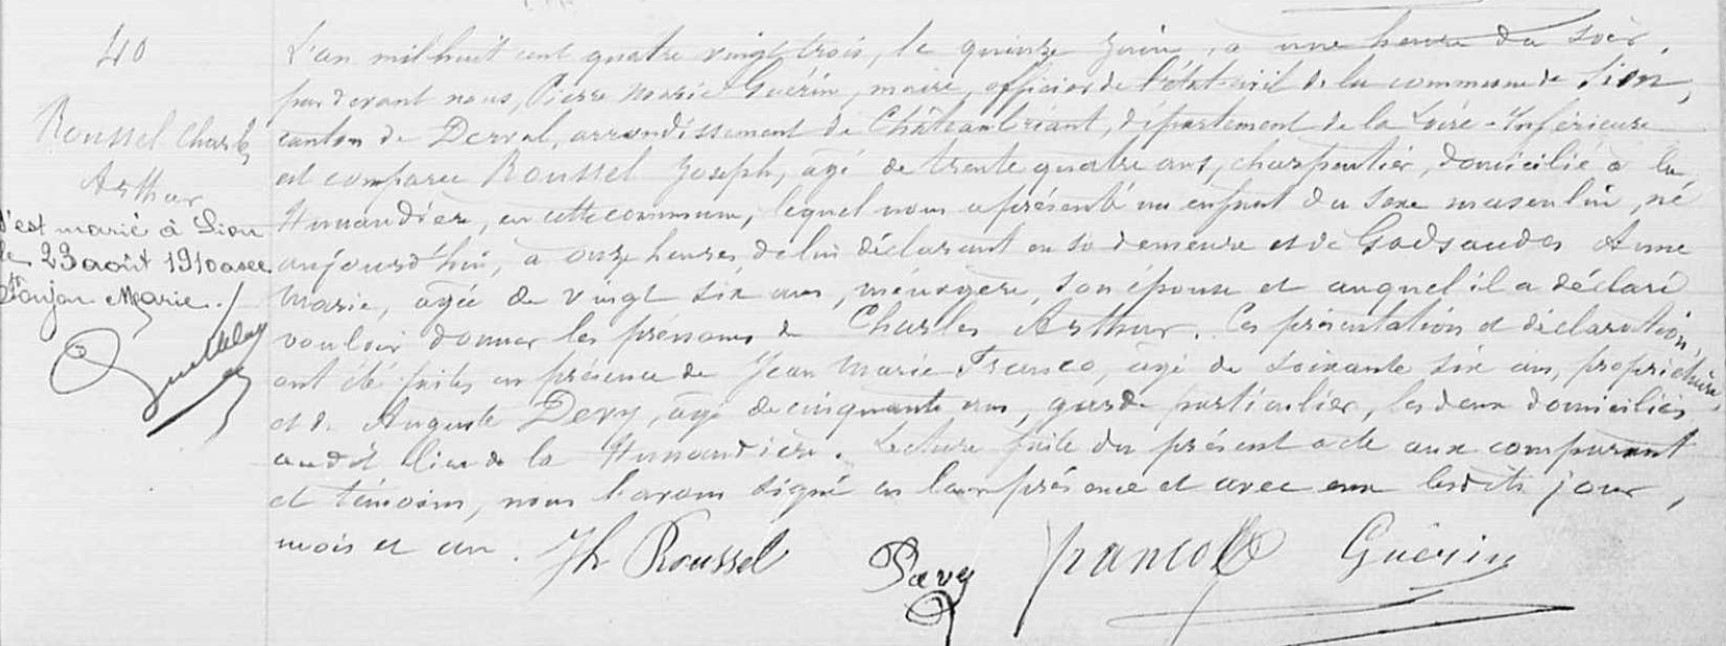 40
Roussel Charles
Arthur
s'est marié à Sion
le 23 août 1910 avec
Marie.
L'an mil huit cent quatre vingt trois, le quinze Juin, à une heure du soir,
par devant nous, Pierre Marie Guérin, maire, officier de l'état-civil de la commune de Sion,
canton de Derval, arrondissement de Châteaubriant, département de la Loire-Inférieure
est comparu Roussel Joseph, agé de trente quatre ans, charpentier, domicilié à la
Hunaudière, en cette commune, lequel nous a présenté un enfant du sexe masculin, né
aujourd'hui, à onze heures, de lui déclarant en sa demeure et de Anne
Marie, agée de vingt six ans, ménagère, son épouse et auquel il a déclaré
vouloir donner les prénoms de Charles Arthur. Ces présentation et déclaration,
ont été faites en présence de Jean Marie Franco, agé de soixante six ans, propriétaire,
et de Auguste agé de cinquante ans, garde particulier, les deux domiciliés
audit lieu de la Hunaudière. Lecture faite du présent acte aux comparant
et témoins, nous l'avons signé en leur présence et avec eux lesdits jour,
mois et an. Jh Roussel Guérin